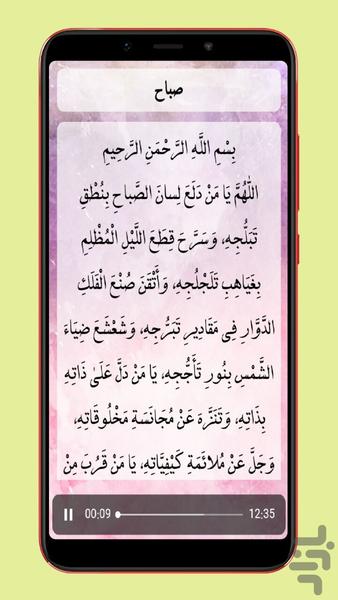 صباح
بِسْمِ اللَّهِ الرَّحْمَنِ الرَّحِيمِ
اللّٰهُمَّ يَا مَنْ دَلَعَ لِسانَ الصَّباحِ بِنُطْقِ
تَبَلُّجِهِ، وَسَرَّحَ قِطَعَ اللَّيْلِ الْمُظْلِمِ
بِغَياهِبِ تَلَجْلُجِهِ، وَأَتْقَنَ صُنْعَ الْفَلَكِ
الدَّوَّارِ فِى مَقادِيرِ تَبَرُّجِهِ، وَشَعْشَعَ ضِيَاءَ
الشَّمْسِ بِنُورِ تَأَجُّجِهِ، يَا مَنْ دَلَّ عَلىٰ ذاتِهِ
بِذاتِهِ، وَتَنَزَّهَ عَنْ مُجَانَسَةِ مَخْلُوقَاتِهِ،
وَجَلَّ عَنْ مُلائَمَةِ كَيْفِيَّاتِهِ، يَا مَنْ قَرُبَ مِنْ
00:09 12:35